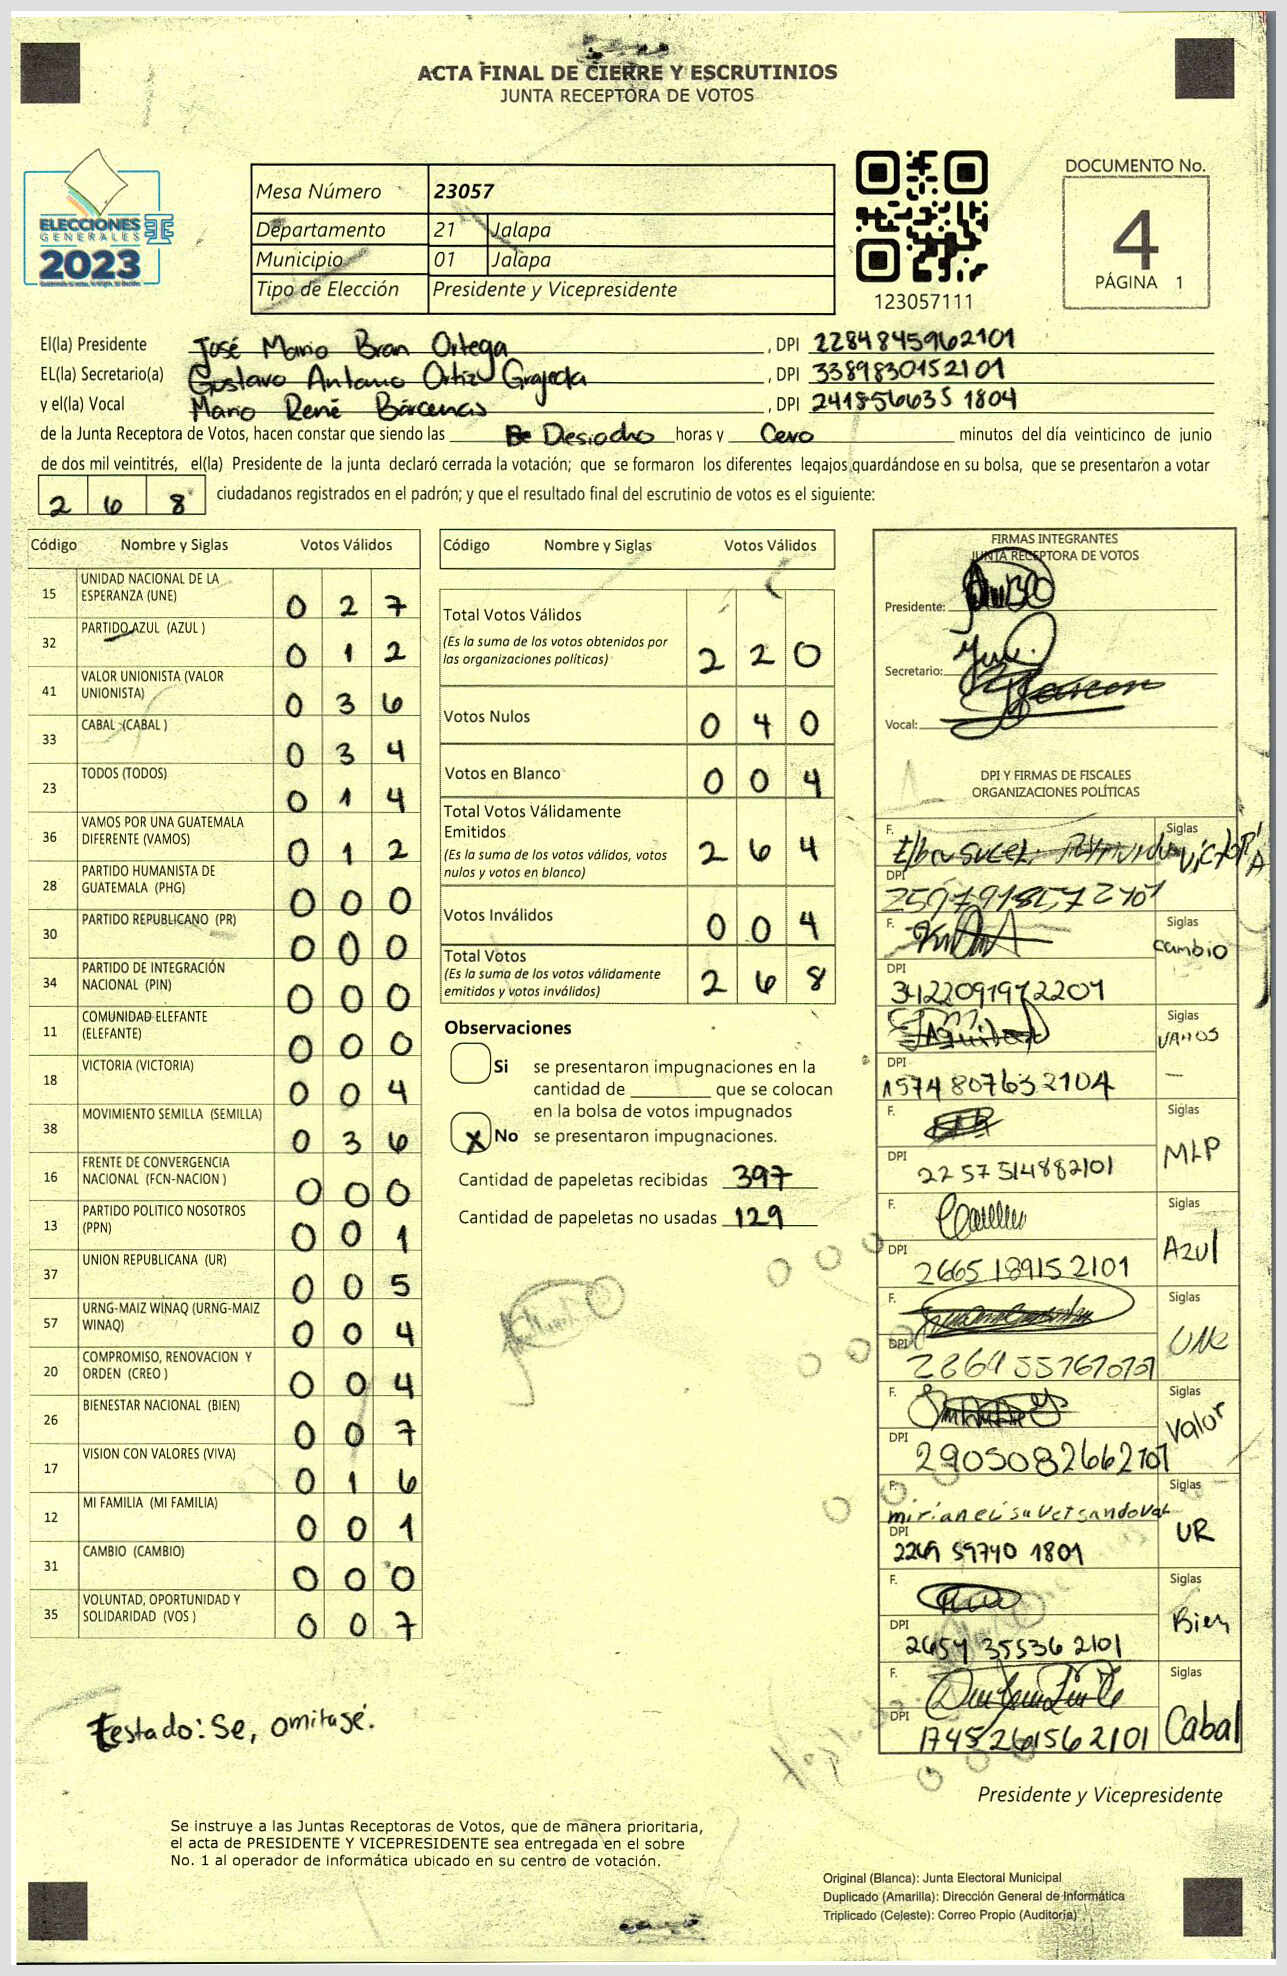 ACTA FINAL DE CIERRE Y ESCRUTINIOS
JUNTA RECEPTORA DE VOTOS
ELECCIONES
GENERALES
2023
Mesa Número 23057
Departamento 21 Jalapa
Municipio 01 Jalapa
Tipo de Elección Presidente y Vicepresidente
123057111
DOCUMENTO No.
4
PÁGINA 1
El(la) Presidente José Mario Bran Ortega, DPI 2284845962101
EL(la) Secretario(a) Gustavo Antonio Ortiz Grajeda, DPI 3389830152101
y el(la) Vocal Mario René Bárcenas, DPI 241856635 1804
de la Junta Receptora de Votos, hacen constar que siendo las Desiocho horas y Cero minutos del día veinticinco de junio
de dos mil veintitrés, el(la) Presidente de la junta declaró cerrada la votación; que se formaron los diferentes legajos guardándose en su bolsa, que se presentaron a votar
2 6 8 ciudadanos registrados en el padrón; y que el resultado final del escrutinio de votos es el siguiente:
Código Nombre y Siglas Votos Válidos
15 UNIDAD NACIONAL DE LA ESPERANZA (UNE) 0 2 7
32 PARTIDO AZUL (AZUL ) 0 1 2
41 VALOR UNIONISTA (VALOR UNIONISTA) 0 3 6
33 CABAL (CABAL ) 0 3 4
23 TODOS (TODOS) 0 1 4
36 VAMOS POR UNA GUATEMALA DIFERENTE (VAMOS) 0 1 2
28 PARTIDO HUMANISTA DE GUATEMALA (PHG) 0 0 0
30 PARTIDO REPUBLICANO (PR) 0 0 0
34 PARTIDO DE INTEGRACIÓN NACIONAL (PIN) 0 0 0
11 COMUNIDAD ELEFANTE (ELEFANTE) 0 0 0
18 VICTORIA (VICTORIA) 0 0 4
38 MOVIMIENTO SEMILLA (SEMILLA) 0 3 6
16 FRENTE DE CONVERGENCIA NACIONAL (FCN-NACION ) 0 0 0
13 PARTIDO POLITICO NOSOTROS (PPN) 0 0 1
37 UNION REPUBLICANA (UR) 0 0 5
57 URNG-MAIZ WINAQ (URNG-MAIZ WINAQ) 0 0 4
20 COMPROMISO, RENOVACION Y ORDEN (CREO ) 0 0 4
26 BIENESTAR NACIONAL (BIEN) 0 0 7
17 VISION CON VALORES (VIVA) 0 1 6
12 MI FAMILIA (MI FAMILIA) 0 0 1
31 CAMBIO (CAMBIO) 0 0 0
35 VOLUNTAD, OPORTUNIDAD Y SOLIDARIDAD (VOS ) 0 0 7
testado: Se, omitase.
Código Nombre y Siglas Votos Válidos
Total Votos Válidos 2 2 0
(Es la suma de los votos obtenidos por
las organizaciones políticas)
Votos Nulos 0 4 0
Votos en Blanco 0 0 4
Total Votos Válidamente
Emitidos 2 6 4
(Es la suma de los votos válidos, votos
nulos y votos en blanco)
Votos Inválidos 0 0 4
Total Votos 2 6 8
(Es la suma de los votos válidamente
emitidos y votos inválidos)
Observaciones
Si se presentaron impugnaciones en la
cantidad de ________ que se colocan
en la bolsa de votos impugnados
X No se presentaron impugnaciones.
Cantidad de papeletas recibidas 397
Cantidad de papeletas no usadas 129
FIRMAS INTEGRANTES
JUNTA RECEPTORA DE VOTOS
Presidente:
Secretario:
Vocal:
DPI Y FIRMAS DE FISCALES
ORGANIZACIONES POLÍTICAS
F. Siglas VICTORIA
DPI
F. Siglas cambio
DPI 3422091972201
F. Siglas VAMOS
DPI 1574807632104
F. Siglas MLP
DPI 2257514882101
F. Siglas Azul
DPI 2665189152101
F. Siglas UNE
DPI
F. Siglas Valor
DPI 2905082662101
F. Siglas UR
DPI 2269 59740 1801
F. Siglas Bien
DPI 2654 35536 2101
F. Siglas Cabal
DPI 1745261562101
Presidente y Vicepresidente
Se instruye a las Juntas Receptoras de Votos, que de manera prioritaria,
el acta de PRESIDENTE Y VICEPRESIDENTE sea entregada en el sobre
No. 1 al operador de informática ubicado en su centro de votación.
Original (Blanca): Junta Electoral Municipal
Duplicado (Amarilla): Dirección General de Informática
Triplicado (Celeste): Correo Propio (Auditoría)